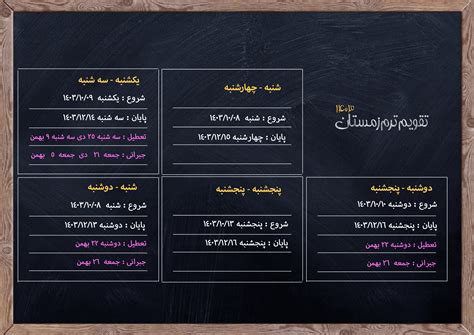 تقویم ترم زمستان ۱۴۰۳
شنبه - چهارشنبه
شروع : شنبه ۱۴۰۳/۱۰/۰۸
پایان : چهارشنبه ۱۴۰۳/۱۲/۱۵
یکشنبه - سه شنبه
شروع : یکشنبه ۱۴۰۳/۱۰/۰۹
پایان : سه شنبه ۱۴۰۳/۱۲/۱۴
تعطیل : سه شنبه ۲۵ دی سه شنبه ۹ بهمن
جبرانی : جمعه ۲۱ دی جمعه ۵ بهمن
دوشنبه - پنجشنبه
شروع : دوشنبه ۱۴۰۳/۱۰/۱۰
پایان : پنجشنبه ۱۴۰۳/۱۲/۱۶
تعطیل : دوشنبه ۲۲ بهمن
جبرانی : جمعه ۲۶ بهمن
پنجشنبه - پنجشنبه
شروع : پنجشنبه ۱۴۰۳/۱۰/۱۳
پایان : پنجشنبه ۱۴۰۳/۱۲/۱۶
شنبه - دوشنبه
شروع : شنبه ۱۴۰۳/۱۰/۰۸
پایان : دوشنبه ۱۴۰۳/۱۲/۱۳
تعطیل : دوشنبه ۲۲ بهمن
جبرانی : جمعه ۲۶ بهمن